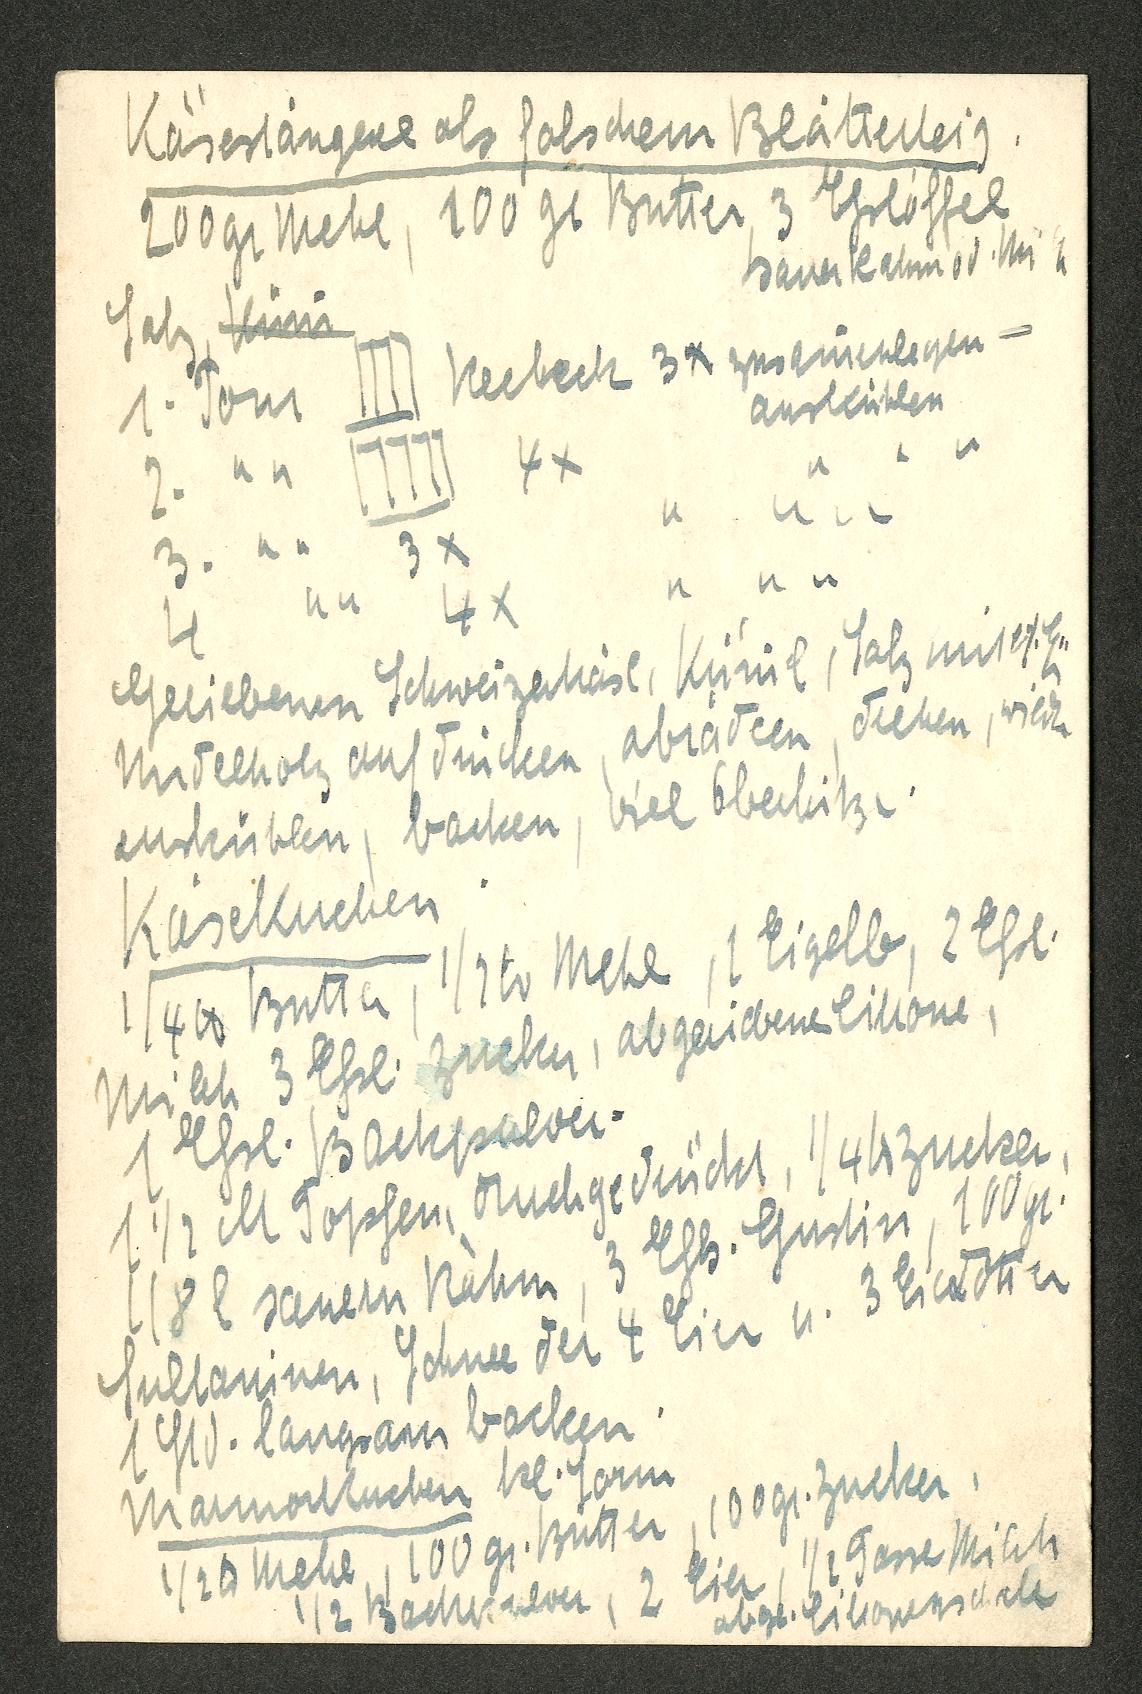 Käsestangerl als falschem Blätterteig.
200 gr Mehl, 100 gr Butter, 3 Esslöffel
sauer Rahm od. Milch
Salz, Küm
1. Tour 3x zusammenlegen –
auskühlen
2. " " 4x " " "
3. " " 3x " " "
4 " " 4x " " "
Geriebenen Schweizerkäse, Kümel, Salz mit
Nudelholz aufdrücken, abrädeln, drehen, wieder
auskühlen, backen, viel Oberhitze.
Käsekuchen.
1/4 ℔ Butter, 1/2 ℔ Mehl, 1 Eigelb, 2 Essl.
Milch 3 Essl. Zucker, abgeriebene Citrone,
1 Essl. Backpulver.
1 1/2 ℔ Topfen, durchgedrückt, 1/4 ℔ Zucker,
1/8 l sauern Rahm, 3 Essl. Gustin, 100 gr.
Sultaninen, Schnee der 4 Eier u. 3 Eierdotter
1 Std. langsam backen.
Marmorkuchen kl. Form
1/2 ℔ Mehl, 100 gr. Butter, 100 gr. Zucker,
1/2 Backpulver, 2 Eier, 1/2 Tasse Milch
abger. Citronenschale